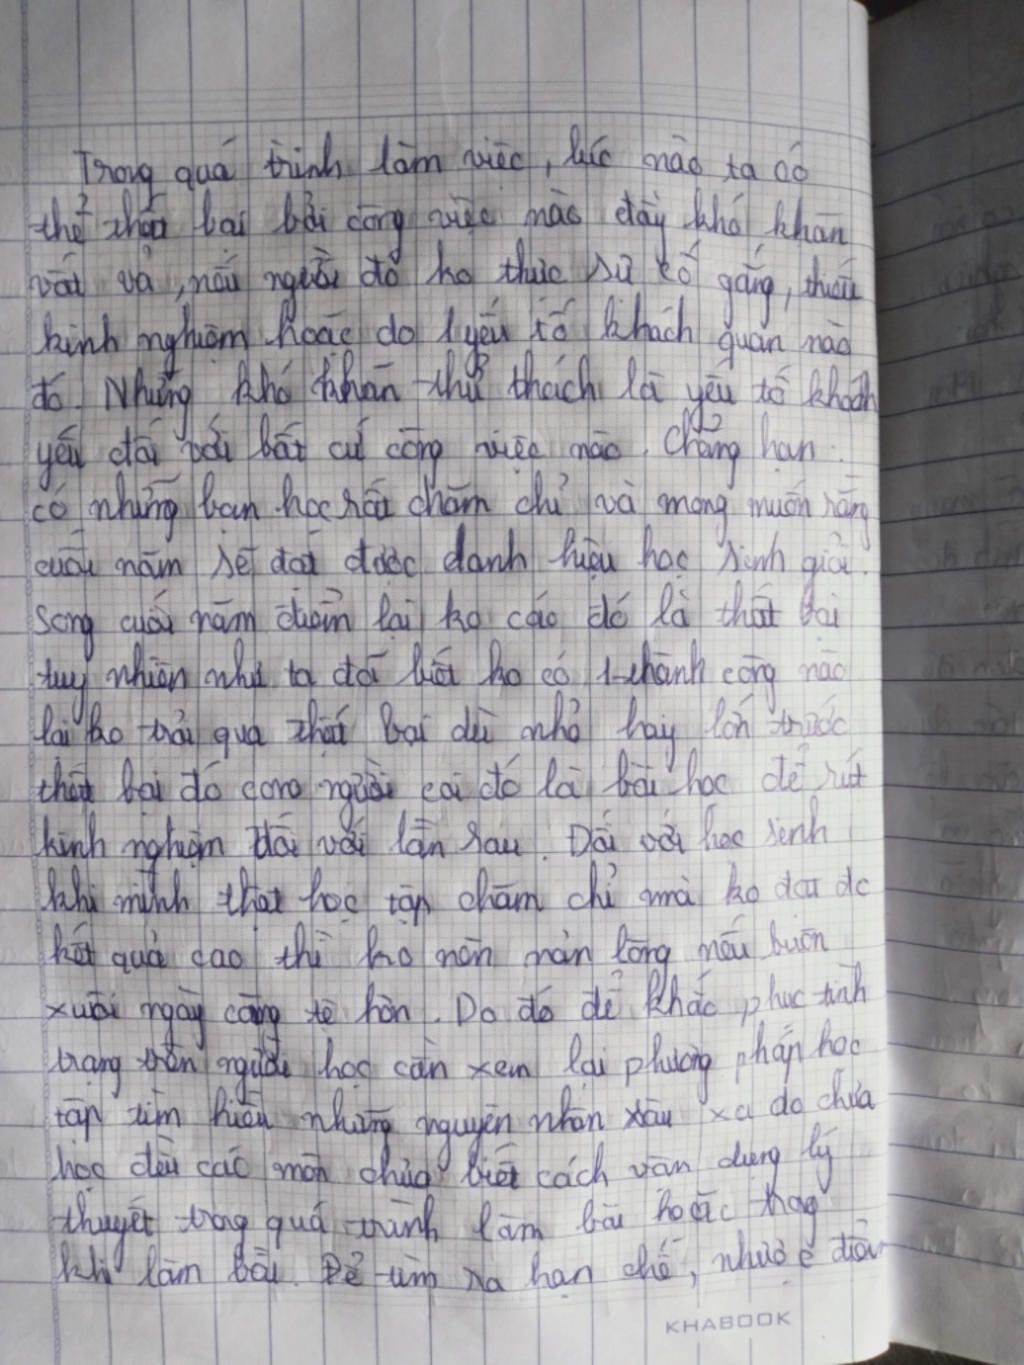 Trong quá trình làm việc, lúc nào ta có
thể thất bại bởi công việc nào đầy khó khăn
vất vả, nếu người đó ko thực sự cố gắng, thiếu
kinh nghiệm hoặc do 1 yếu tố khách quan nào
đó. Những khó khăn thử thách là yếu tố khách
yếu đối với bất cứ công việc nào. Chẳng hạn
có những bạn học rất chăm chỉ và mong muốn rằng
cuối năm sẽ đạt được danh hiệu học sinh giỏi.
Song cuối năm điểm lại ko cao đó là thất bại
tuy nhiên như ta đã biết ko có 1 thành công nào
lại ko trải qua thất bại dù nhỏ hay lớn trước
thất bại đó con người coi đó là bài học để rút
kinh nghiệm đối với lần sau. Đối với học sinh
khi mình thật học tập chăm chỉ mà ko đạt đc
kết quả cao thì ko nên nản lòng nếu buôn
xuôi ngày càng tệ hơn. Do đó để khắc phục tình
trạng trên người học cần xem lại phương pháp học
tập tìm hiểu những nguyên nhân xâu xa do chưa
học đều các môn chưa biết cách vận dụng lý
thuyết trong quá trình làm bài hoặc trong
khi làm bài. Để tìm ra hạn chế, nhược điểm
KHABOOK